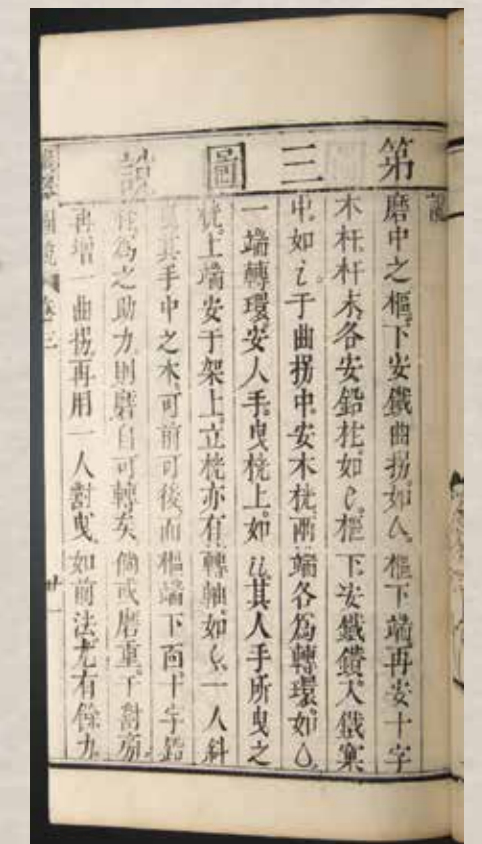 第三圖說
說
磨中之樞。下安鐵曲拐。如 樞下端。再安十字
木杆。杆末。各安鉛柱。如 樞下。安鐵鑽入鐵窠
中。如i。于曲拐中。安木桄。兩端各為轉環。如
一端轉環。安人手曳桄上。如 其人手所曳之
桄。上端安于架上。立桄亦有轉軸。如 一人斜
其手中之木。可前可後。而樞端下面十字鉛
柱。為之助力。則磨自可轉矣。倘或磨重。于對旁。
再增一曲拐。再用一人對曳。如前法。尤有餘力。
圖說 卷三 廿一